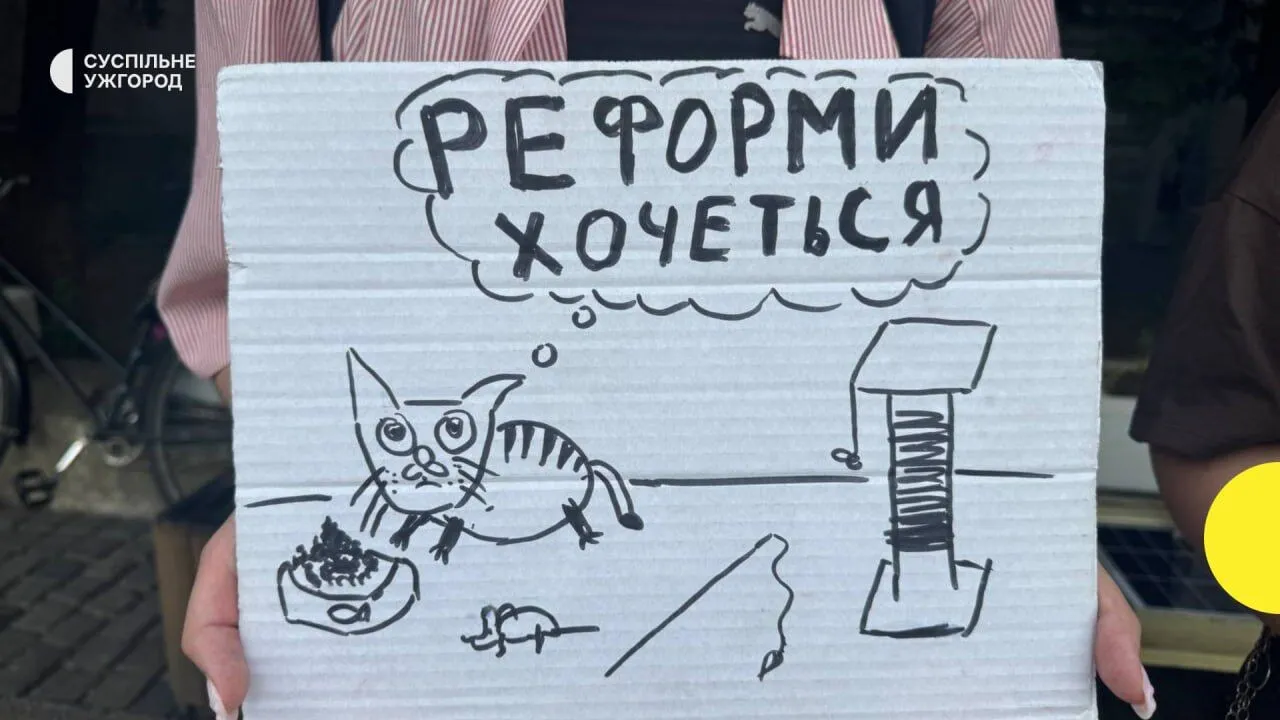 СУСПІЛЬНЕ
УЖГОРОД
РЕФОРМИ
ХОЧЕТЬСЯ